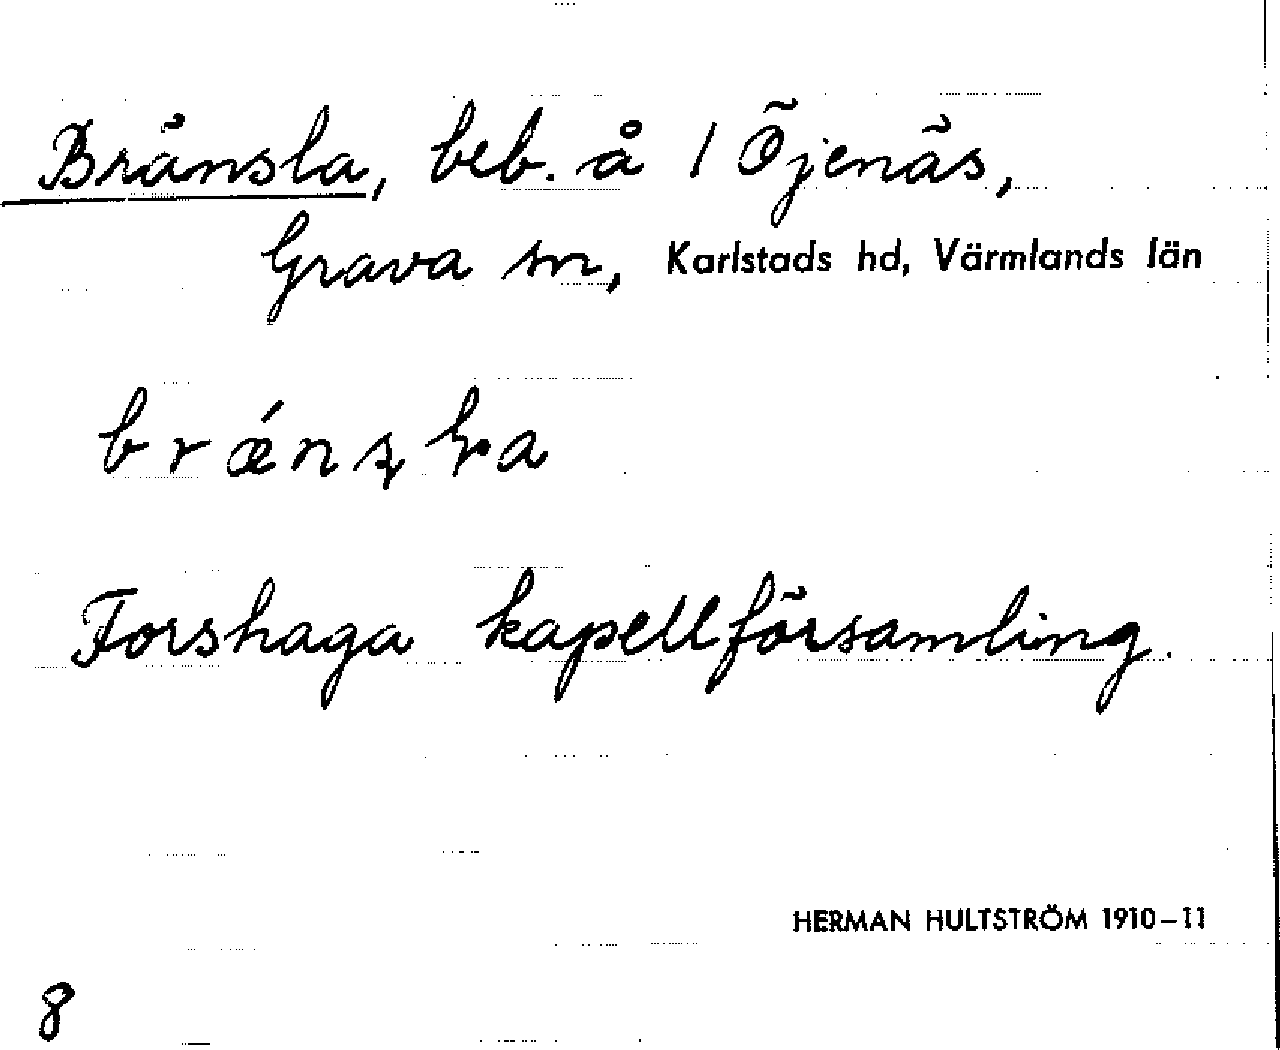 Bränsla, beb. å 1 Öjenäs,
Grava sn, Karlstads hd, Värmlands län
Forshaga kapellförsamling.
HERMAN HULTSTRÖM 1910–11
8